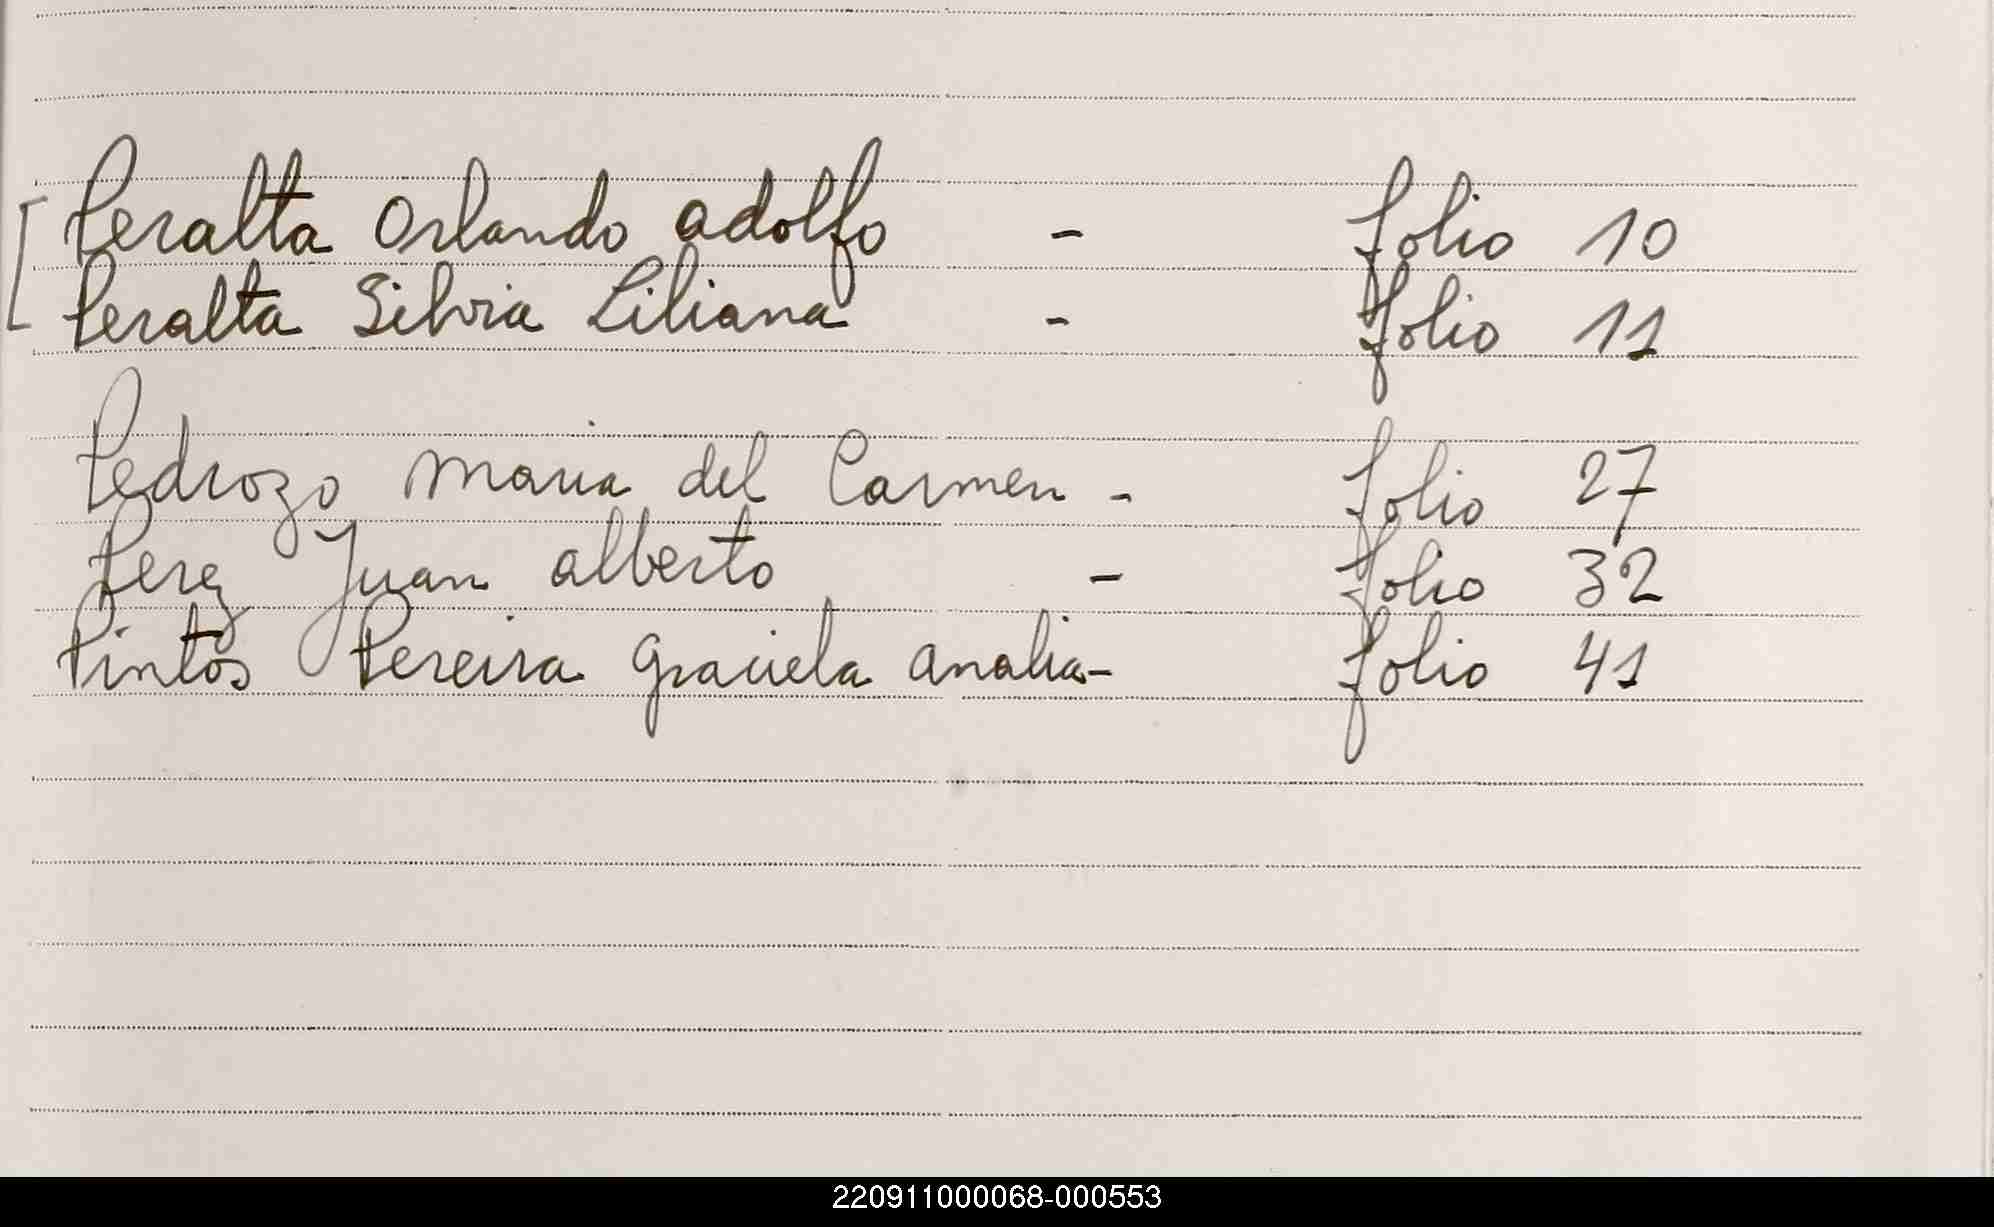 Peralta Orlando adolfo - folio 10
Peralta Silvia Liliana - folio 11
Pedrozo Maria del Carmen - folio 27
Perez Juan alberto - folio 32
Pintos Pereira Graciela analia - folio 41
220911000068-000553